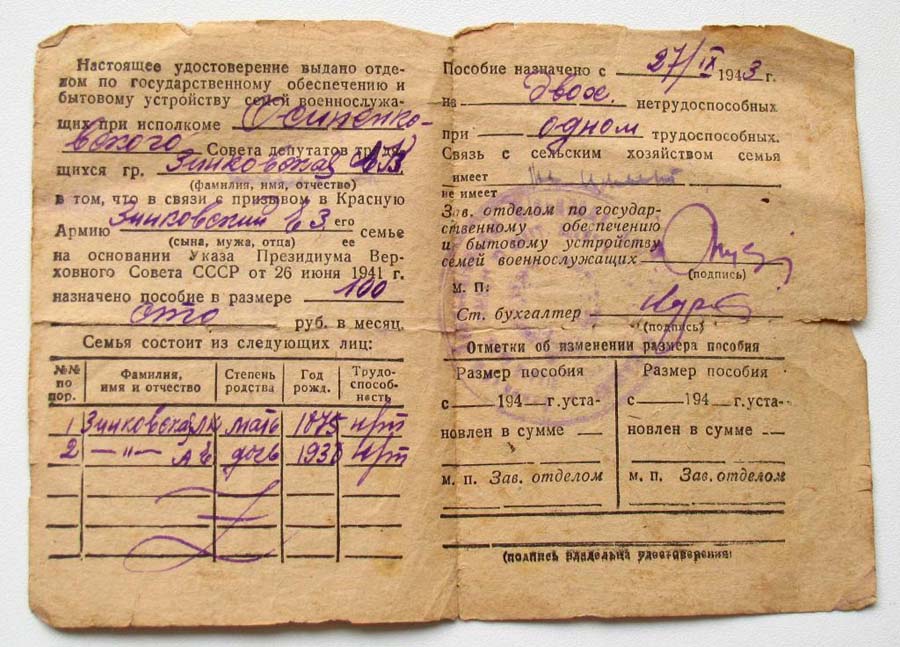 Настоящее удостоверение выдано отде-
лом по государственному обеспечению и
бытовому устройству семей военнослужа-
щих при исполкоме Осипенко-
вского Совета депутатов трудя-
щихся гр. Зинковская
(фамилия, имя, отчество)
в том, что в связи с призывом в Красную
Армию Зинковский его
(сына, мужа, отца) ее семье
на основании Указа Президиума Вер-
ховного Совета СССР от 26 июня 1941 г.
назначено пособие в размере 100
сто руб. в месяц.
Семья состоит из следующих лиц:
№№ по пор. Фамилия, имя и отчество Степень родства Год рожд. Трудо-способ-ность
1 Зинковская мать 1875 н/рт
2 —"— А Е дочь 193 н/рт
Пособие назначено с 27/IX 1943 г.
на двох. нетрудоспособных
при одном трудоспособных.
Связь с сельским хозяйством семья
имеет
не имеет не имеет
Зав. отделом по государ-
ственному обеспечению
и бытовому устройству
семей военнослужащих
(подпись)
м. П:
Ст. бухгалтер
(подпись)
Отметки об изменении размера пособия
Размер пособия Размер пособия
с 194 г. уста- с 194 г. уста-
новлен в сумме новлен в сумме
м. п. Зав. отделом м. п. Зав. отделом
(подпись владельца удостоверения)